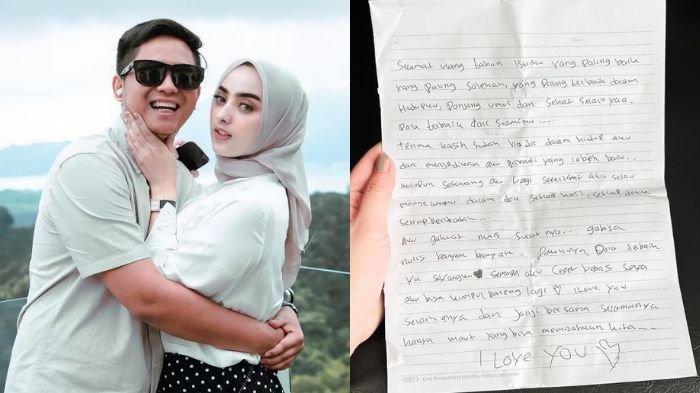 Selamat ulang tahun Istriku yang paling baik
yang paling solehah, yang paling terbaik dalam
Hidupku, Panjang umur dan sehat selalu yaa.
Doa terbaik dari suamimu...
terima kasih sudah hadir dalam hidup aku
dan menjadikan aku pribadi yang lebih baik..
walaupun sekarang aku lagi aku selalu
menemanimu dalam doa setiap hari, setiap
setiap beribadah...
Aku gakuat nulis surat nya... gabisa
nulis banyak banyak. Pokoknya Doa terbaik
ya sayangku semoga aku cepet bebas supaya
aku bisa kumpul bareng lagi I Love you
selamanya dan janji bersama selamanya
hanya maut yang bisa memisahkan kita...
I Love YOU